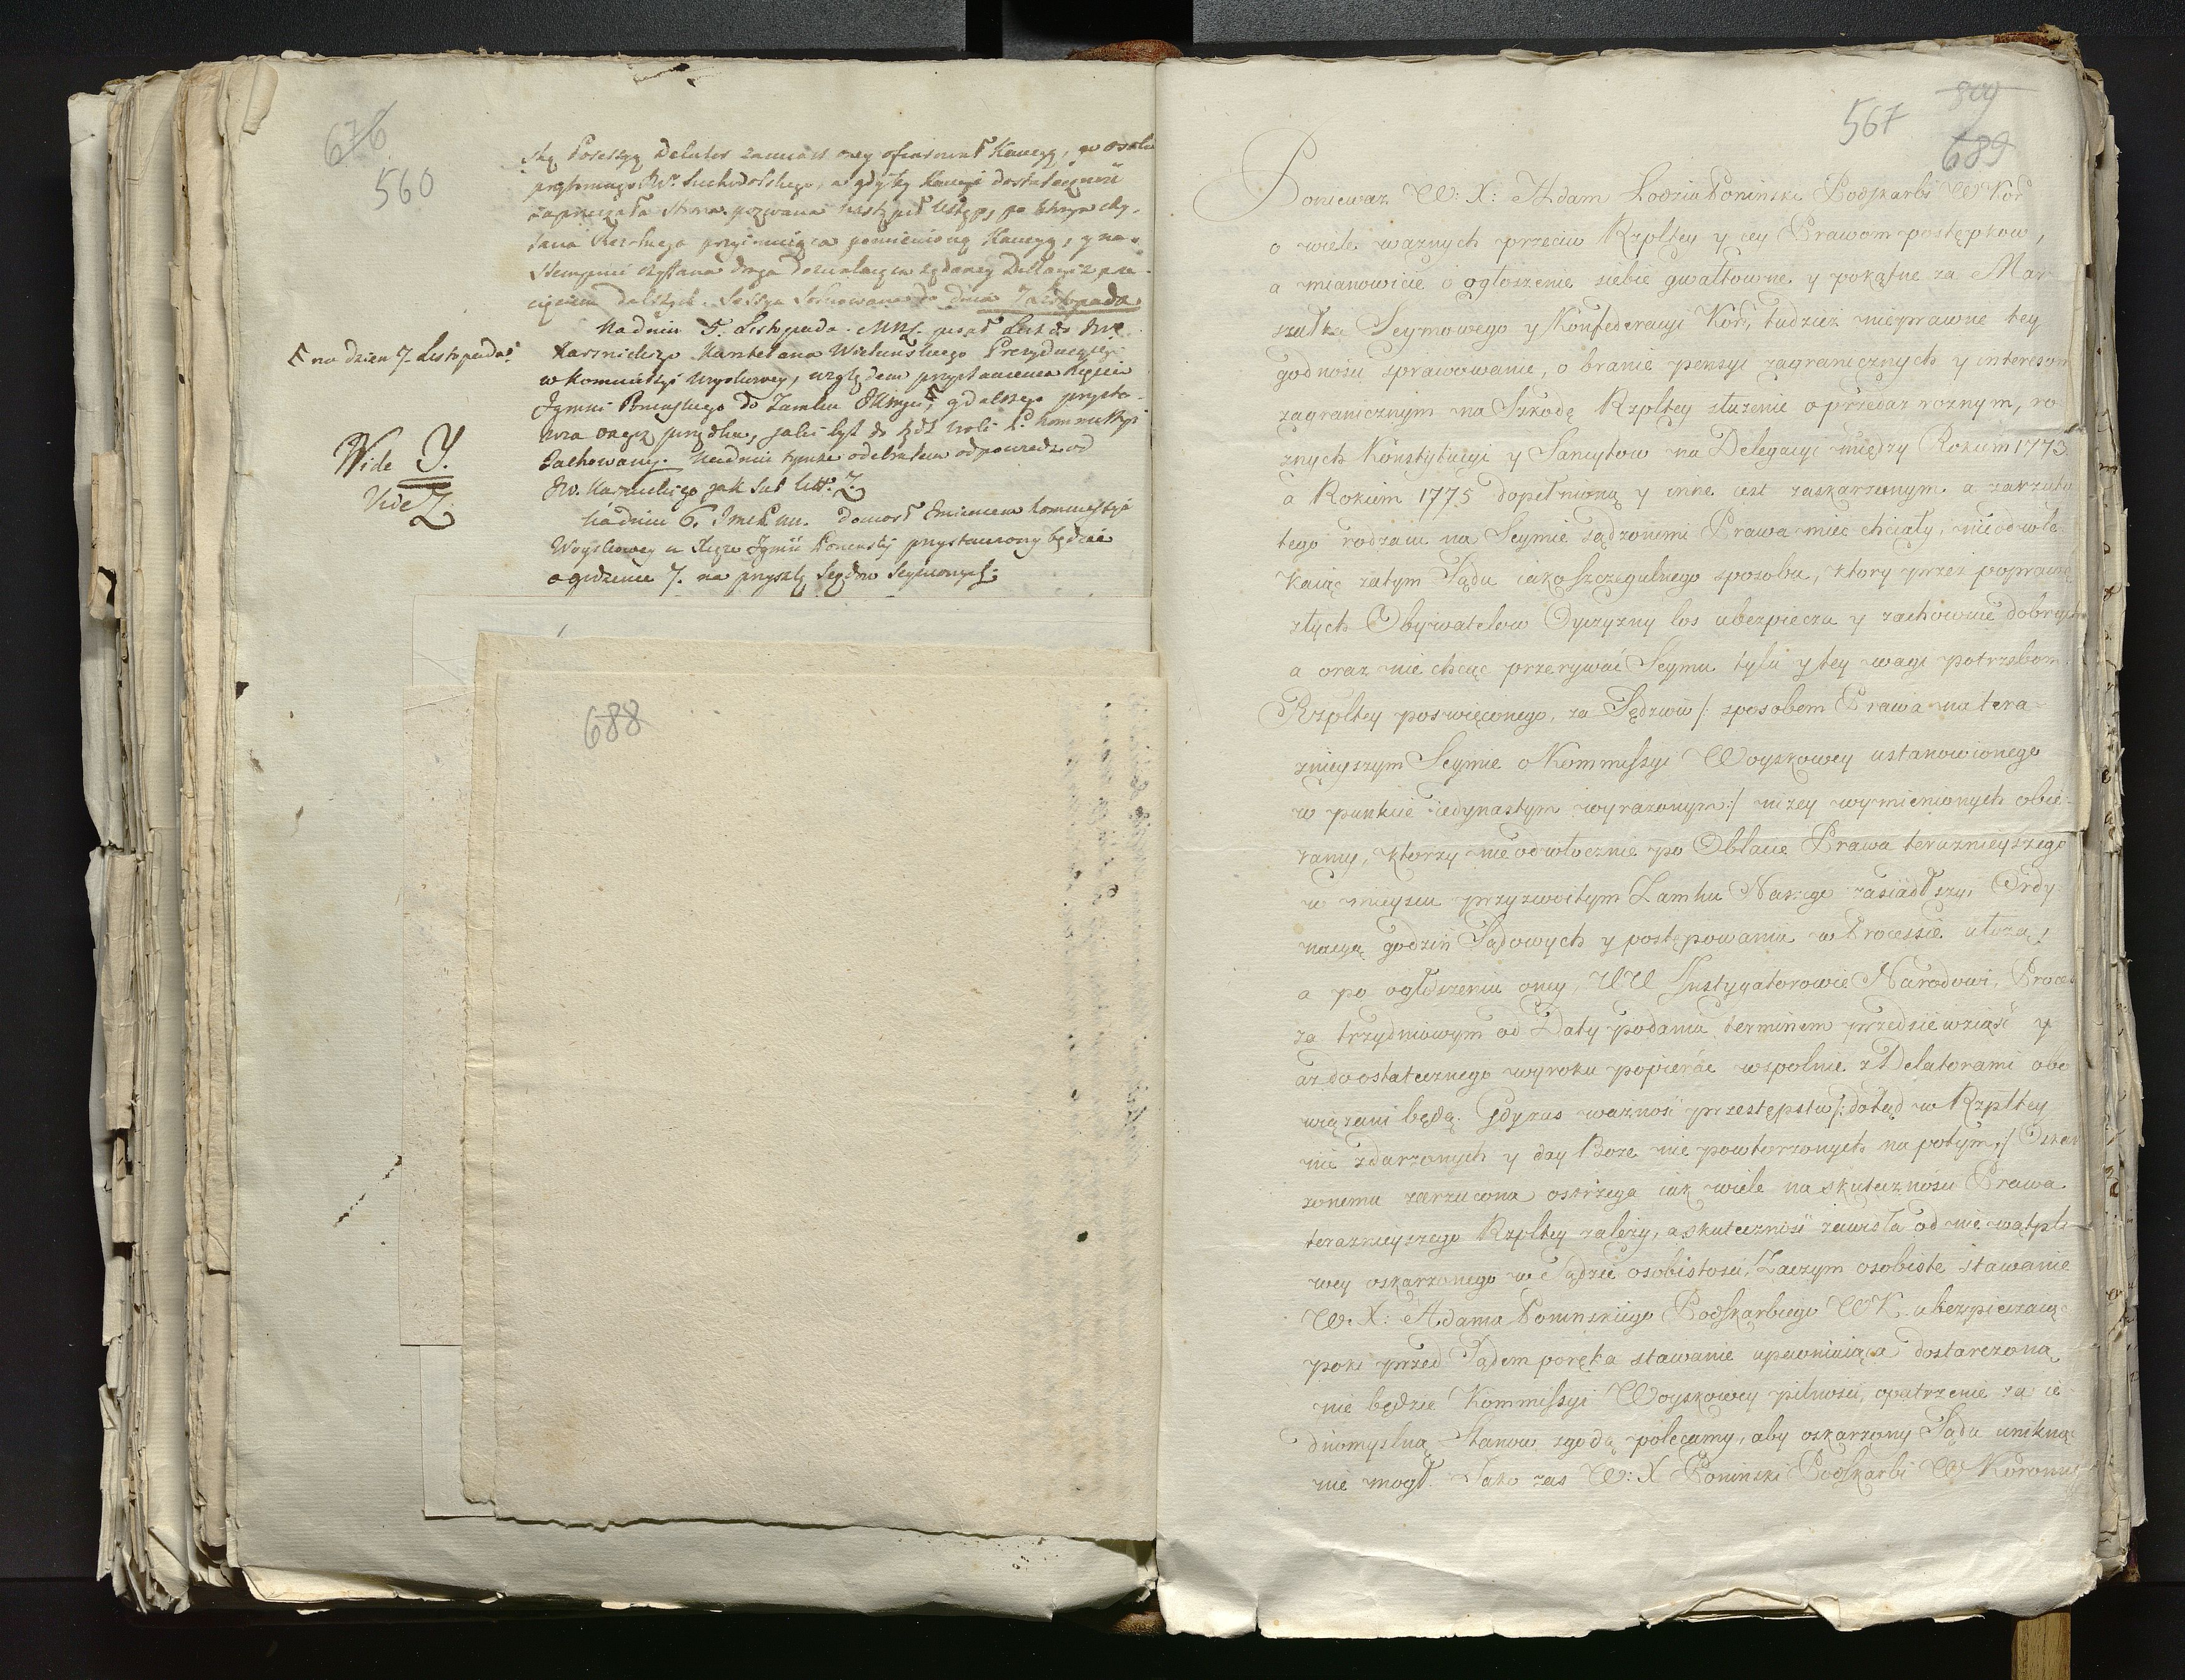 676
560
ską Possessyą Delator zamiast oney ofiarował Kaucyą, w osobie
przytomnego JW. Suchodolskiego, a gdy tey Kaucyi dostateczność
zaprzeczała Strona pozwana nastąpił Ustęp, po którym czy-
tana Rezolucya przyimuiąca pomienioną Kaucyą, y na-
stempnie czytana druga dozwalaiąca żądaney Dyllacyi z prze-
cięciem dalszych. Sessya solwowana do dnia 7 Listopada
Na dniu 5. Listopada
Karsnickiego Kasztelana Wieluńskiego Prezyduiącego
w Kommissyi Woyskowey, względem przystawienia Xięcia
Jgmci Ponińskiego do Zamku
na dzien 7. Listopada
Zachowany. Na dniu tymże odebrałem odpowiedź od
JW. Karsnickiego jak sub litt. Z.
Vide Y.
Vide Z.
Na dniu 6. donosił Imieniem Kommissyi
Woyskowey iż Xiąże Jgmć Poninski przystawiony będzie
o godzinie 7. na przyszłą Sądów Seymowych
688
567
689
Poniewaz W: X: Adam Łodzia Poninski Podskarbi W Kor
o wiele waznych przeciw Rzpltey y iey Prawom postępkow,
a mianowicie o ogłoszenie siebie gwałtowne y pokątne za Mar
szałka Seymowego y Konfederacyi Kor, tudziez nieprawne tey
godności sprawowanie, o branie pensyi zagranicznych y interesom
zagranicznym na Szkodę Rzpltey służenie o przedaz roznym, ro
znych Konstytucyi y Sancytow na Delegacyi między Rokiem 1773.
a Rokiem 1775 dopełnioną y inne iest zaskarzonym. a zarzuty
tego rodzaiu na Seymie sądzonemi Prawa miec chciały, nieodwle-
kaiąc zatym Sądu iako szczegulnego sposobu, ktory przez poprawę
złych Obywatelow Oyczyzny los ubezpiecza y zachowuie dobrych
a oraz nie chcąc przerywać Seymu tylu y tey wagi potrzebom
Rzpltey poswięconego, za Sędziów /: sposobem Prawa na tera-
znieyszym Seymie o Kommissyi Woyskowey ustanowionego
w punkcie iedynastym wyrazonym :/ nizey wymienionych obie-
ramy, ktorzy nieodwłocznie po Oblacie Prawa teraznieyszego
w mieyscu przyzwoitym Zamku Naszego zasiadłszy, Ordy
nacyą godzin Sądowych y postępowania w Processie ułożą,
a po ogłoszeniu oney, WW Instygatorowie Narodowi, Proces
za trzydniowym od Daty podania terminem przedsięwziąść y
az do ostatecznego wyroku popierać wspolnie z Delatorami obo
wiązani będą. Gdy zas ważność przestępstw /: dotąd w Rzpltey
nie zdarzonych y day Boze nie powtorzonych na potym :/ Oskar
zonemu zarzucona ostrzega iak wiele na skuteczności Prawa
teraznieyszego Rzpltey zależy, a skuteczność zawisła od niewątpli-
wey oskarzonego w Sądzie osobistości, Zaczym osobiste stawanie
W. X: Adama Poninskiego Podskarbiego WK. ubezpieczaiąc
poki przed Sądem poręka stawanie upewniaiąca dostarczoną
nie będzie Kommissyi Woyskowey pilności, opatrzenie za ie-
dnomyslną Stanow zgodą polecamy, aby oskarzony Sądu uniknąć
nie mogł. Jako zas W: X Poninski Podskarbi W Koronny